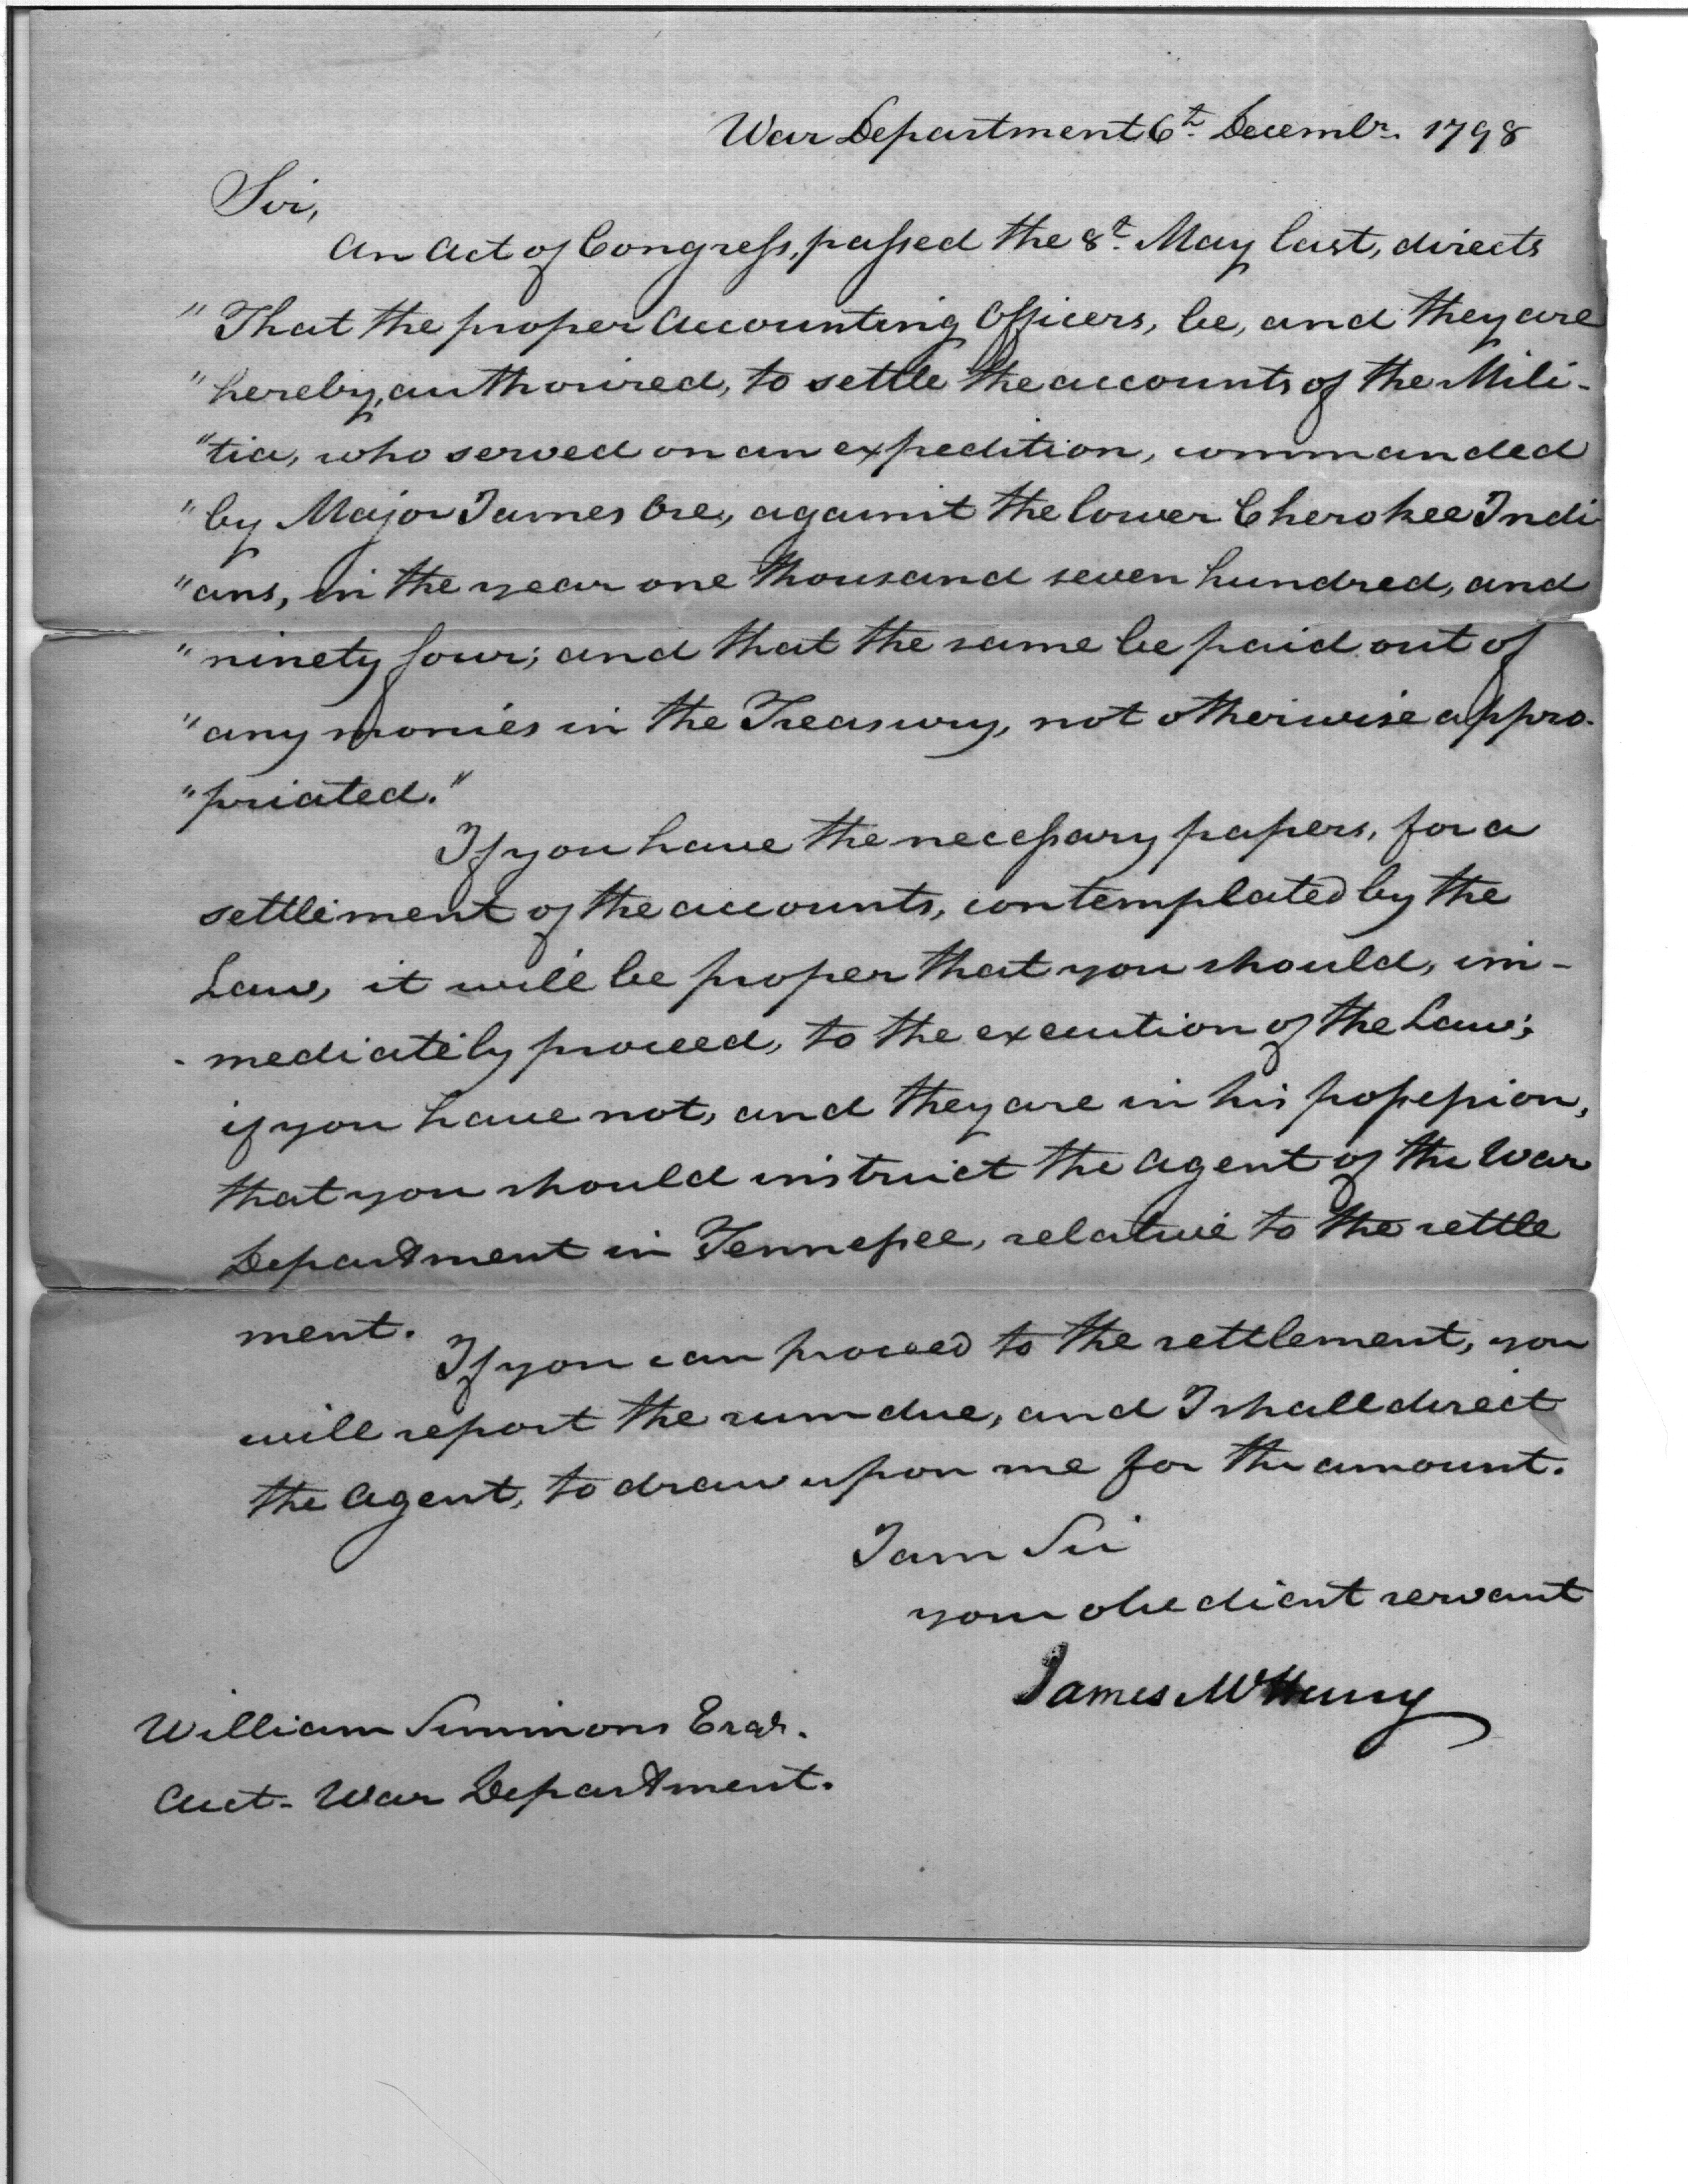 War Department 6th. Decembr. 1798
Sir,
An Act of Congress, passed the 8th. May last, directs
" That the proper Accounting Officers, be, and they are
" hereby, authorized, to settle the accounts of the Mili-
" tia, who served on an expedition, commanded
" by Major James Ore, against the lower Cherokee Indi
" ans, in the year one thousand seven hundred, and
" ninety four; and that the same be paid out of
" any monies in the Treasury, not otherwise appro-
" priated."
If you have the necessary papers, for a
settlement of the accounts, contemplated by the
Law, it will be proper that you should, im-
- mediately proceed, to the execution of the Law;
if you have not, and they are in his possession,
that you should instruct the Agent of the War
Department in Tennessee, relative to the settle
ment.
If you can proceed to the settlement, you
will report the sum due, and I shall direct
the Agent, to draw upon me for the amount.
I am Sir
your obedient servant
James McHenry
William Simmons Esqr.
Acct. War Department.